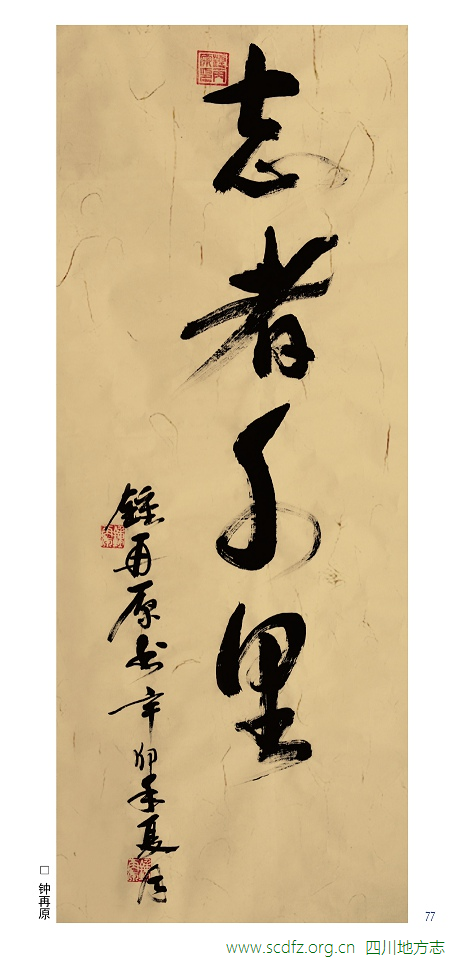 志者千里
鍾再原书辛卯年夏月
□ 钟再原
77
www.scdfz.org.cn 四川地方志